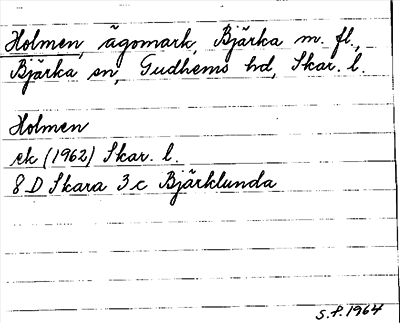 Holmen, ägomark, Bjärka m. fl.,
Bjärka sn, Gudhems hd, Skar. l.
Holmen
ek (1962) Skar. l.
8 D Skara 3 c Bjärklunda
S.P. 1964